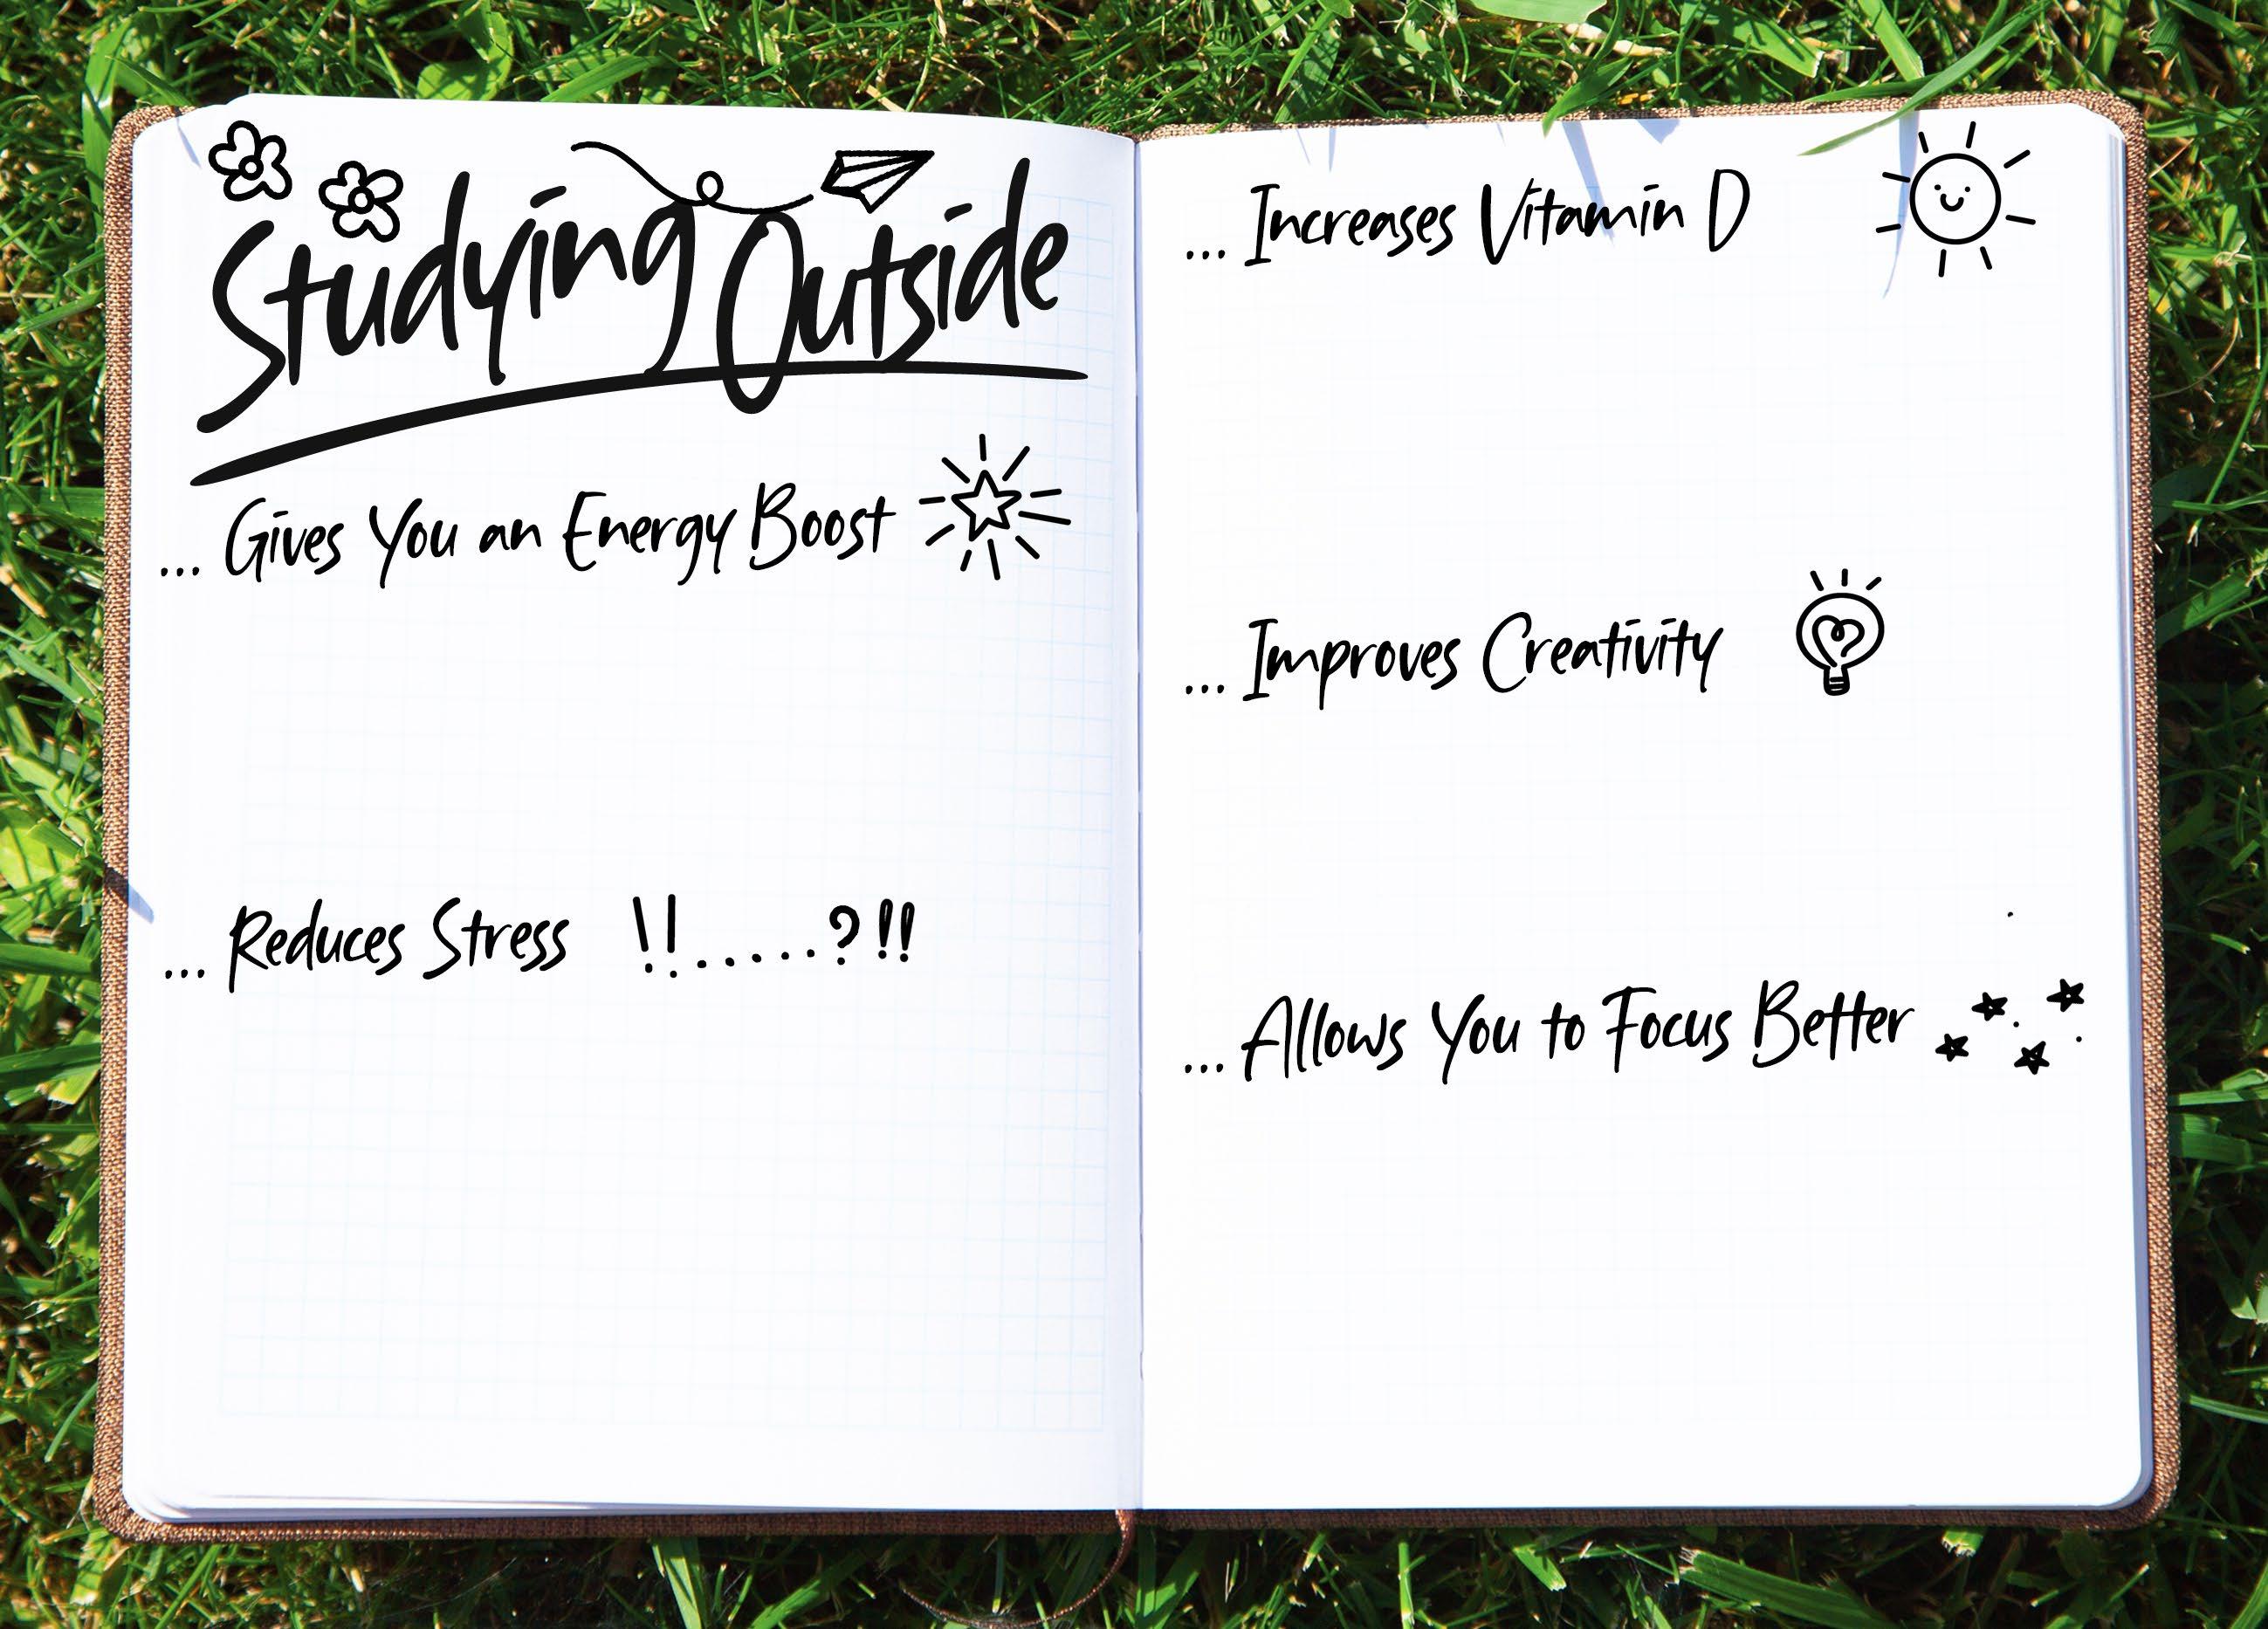 Studying Outside
... Gives You an Energy Boost
... Reduces Stress !!.....?!!
... Increases Vitamin D
... Improves Creativity
... Allows You to Focus Better